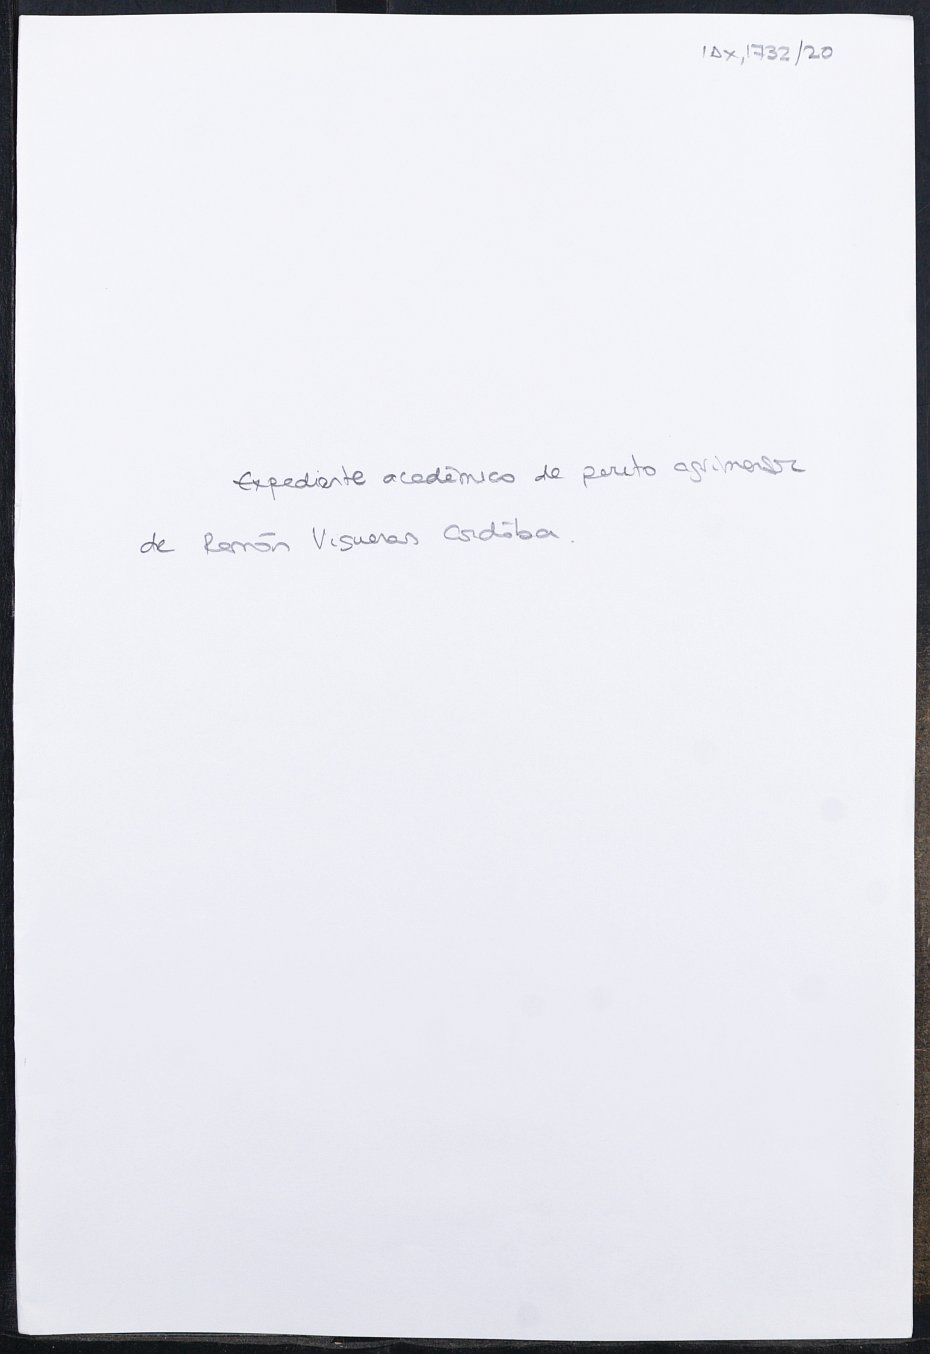 IAX,1732/20
Expediente académico de perito agrimensor
de Ramón Vigueras Cordóba.